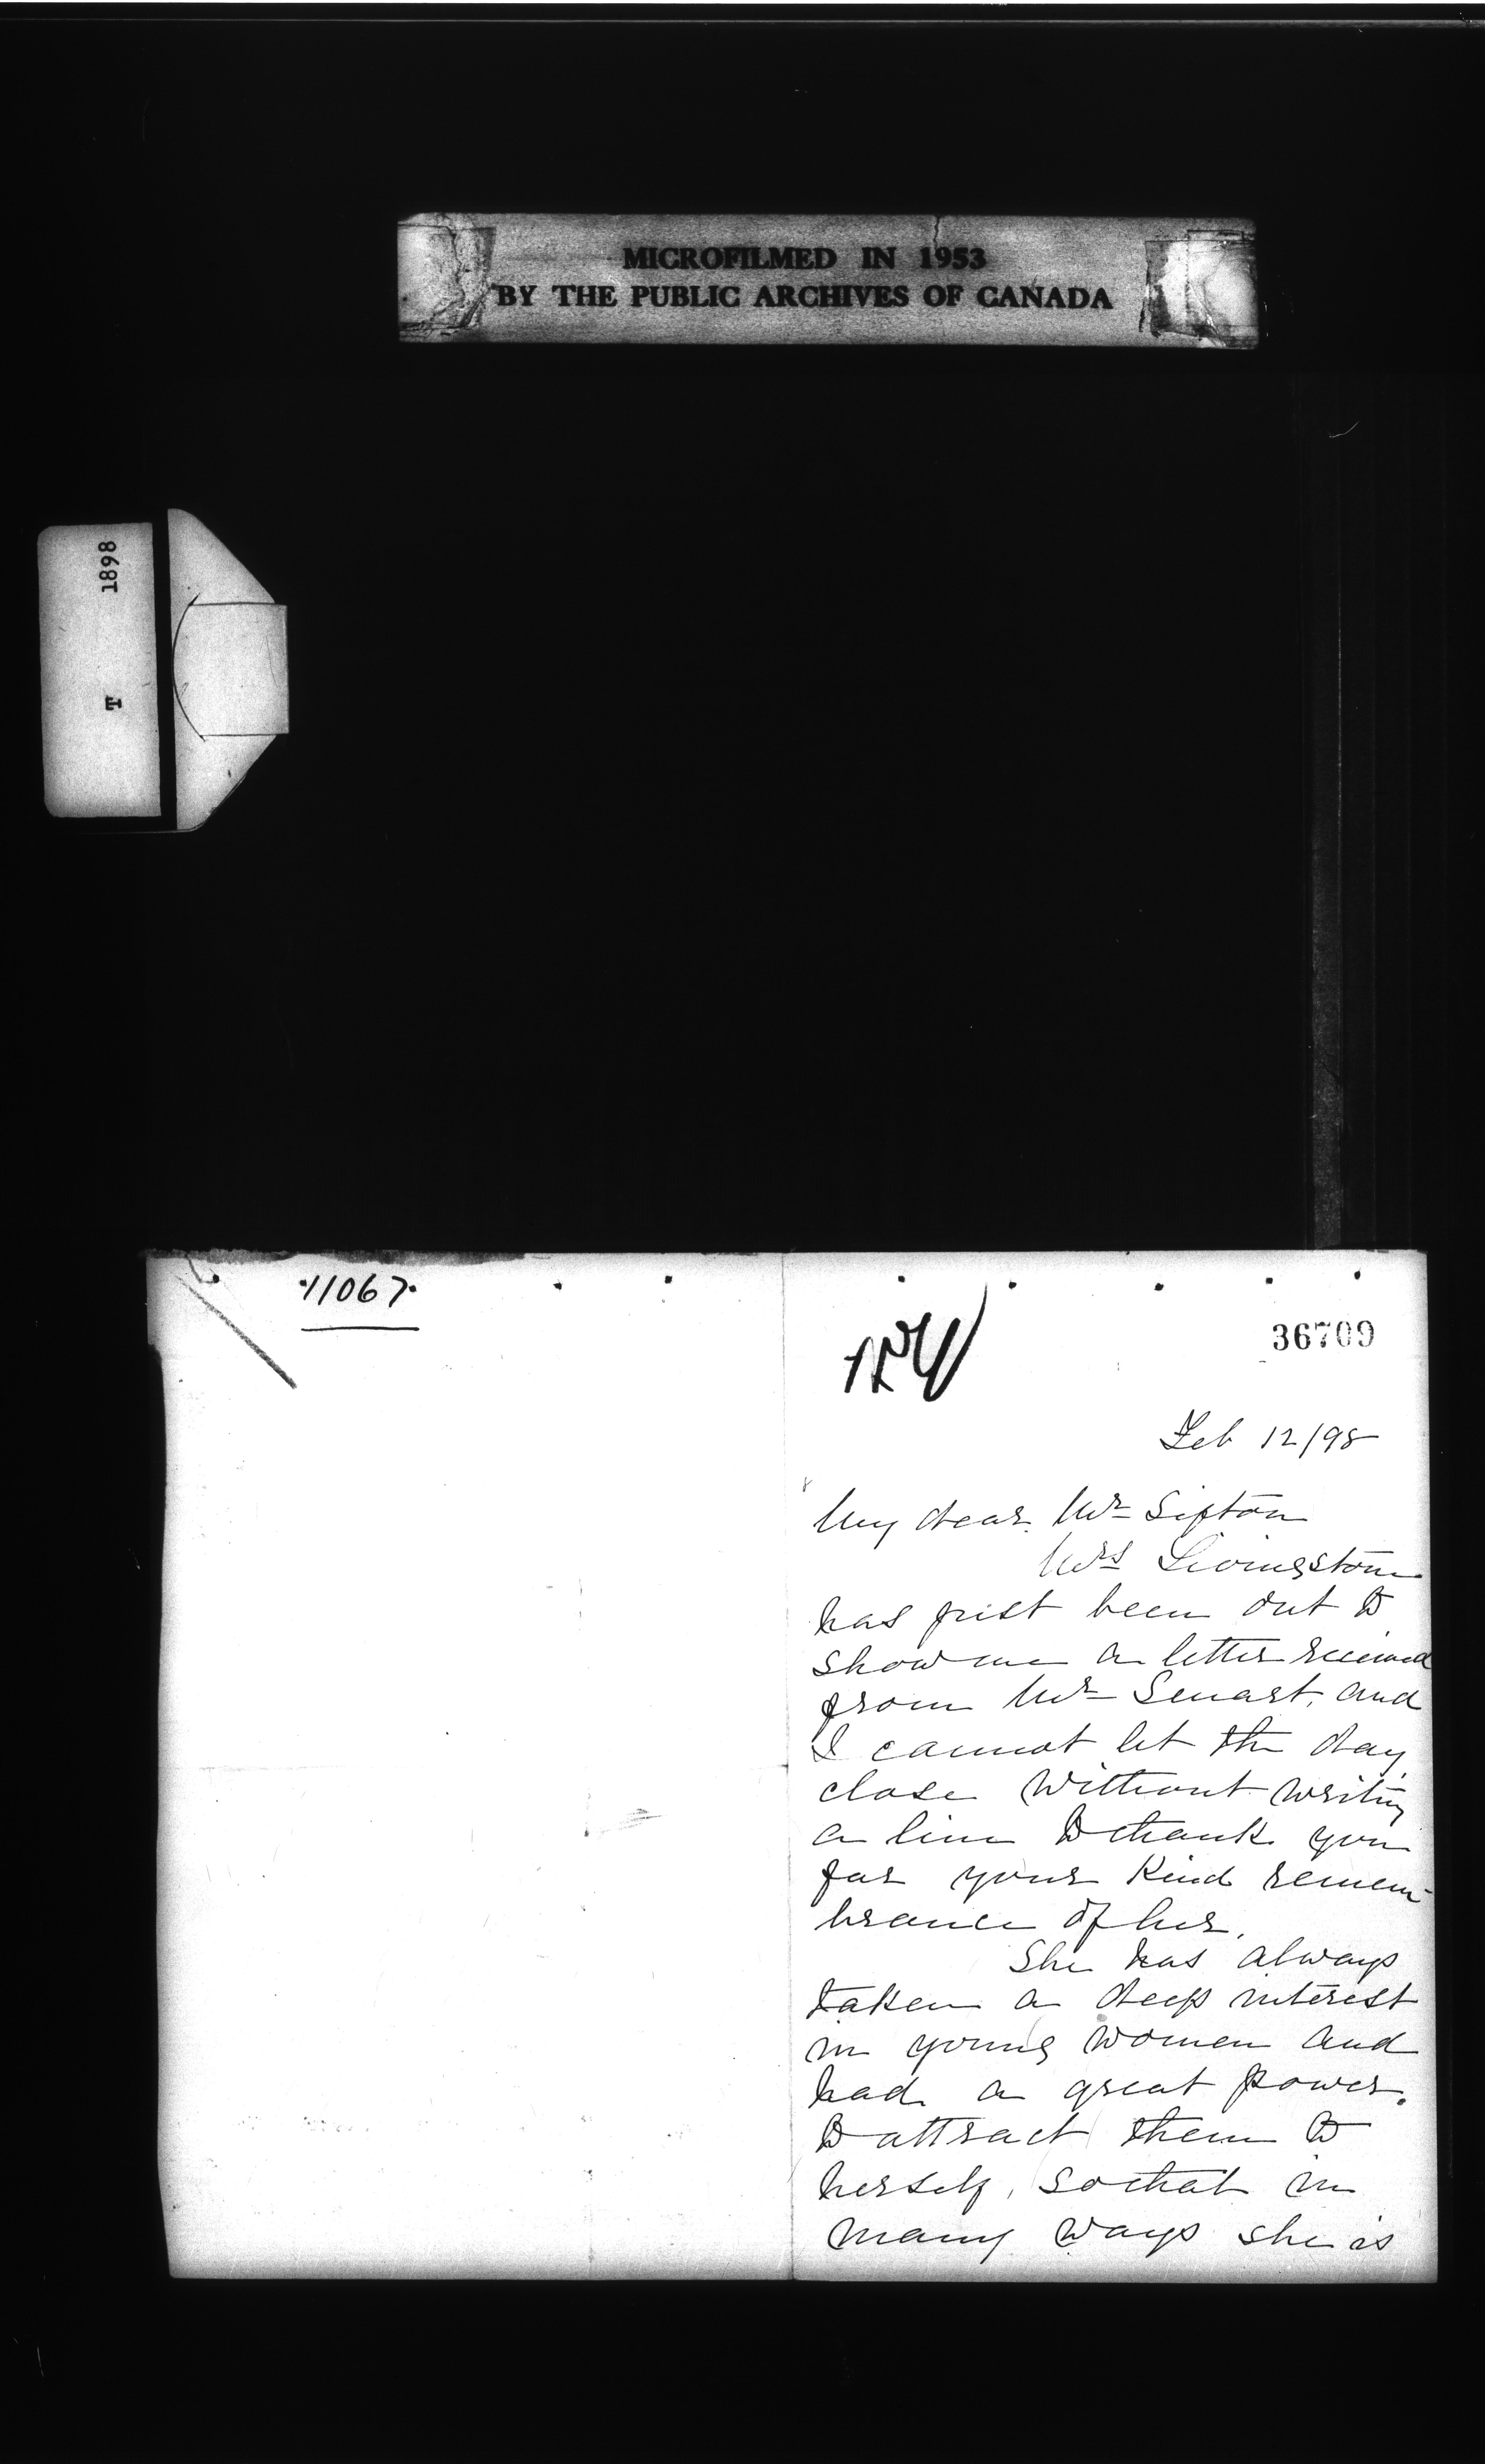 MICROFILMED IN 1953
BY THE PUBLIC ARCHIVES OF CANADA
1898
T
11067
36709
Feb 12/98
My dear Mr Sifton
Mrs Livingstone
has just been out to
show me a letter received
from Mr Smart, and
I cannot let the day
close without writing
a line to thank you
for your kind remem-
brance of her.
She has always
taken a deep interest
in young women and
had a great power
to attract them to
herself, so that in
many ways she is